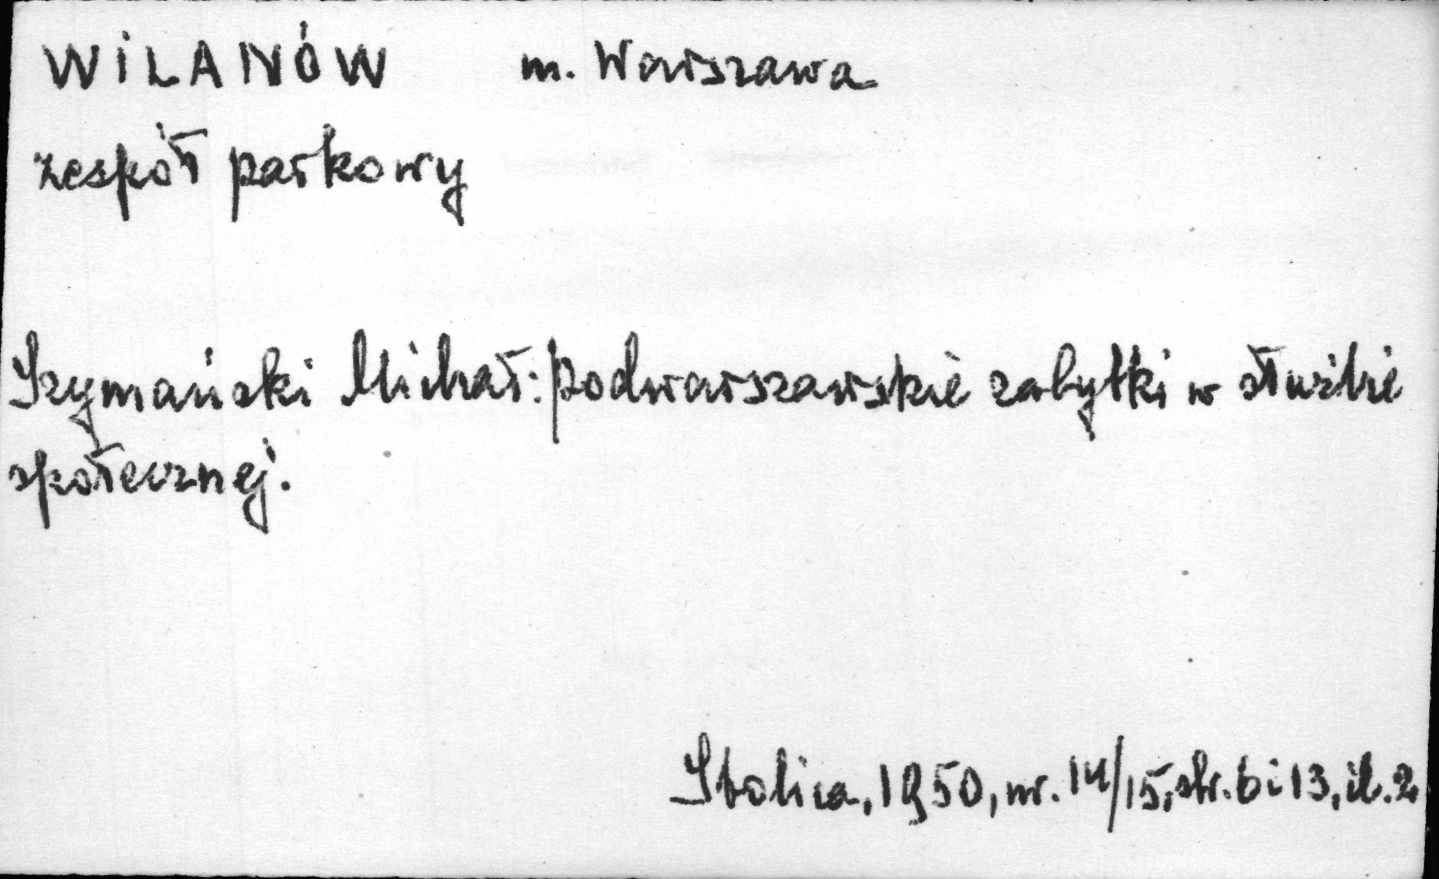 WILANÓW m. Warszawa
zespół parkowy
Szymański Michał: podwarszawskie zabytki w służbie
społecznej.
Stolica, 1950, nr. 14/15, str. 6 i 13, il. 2